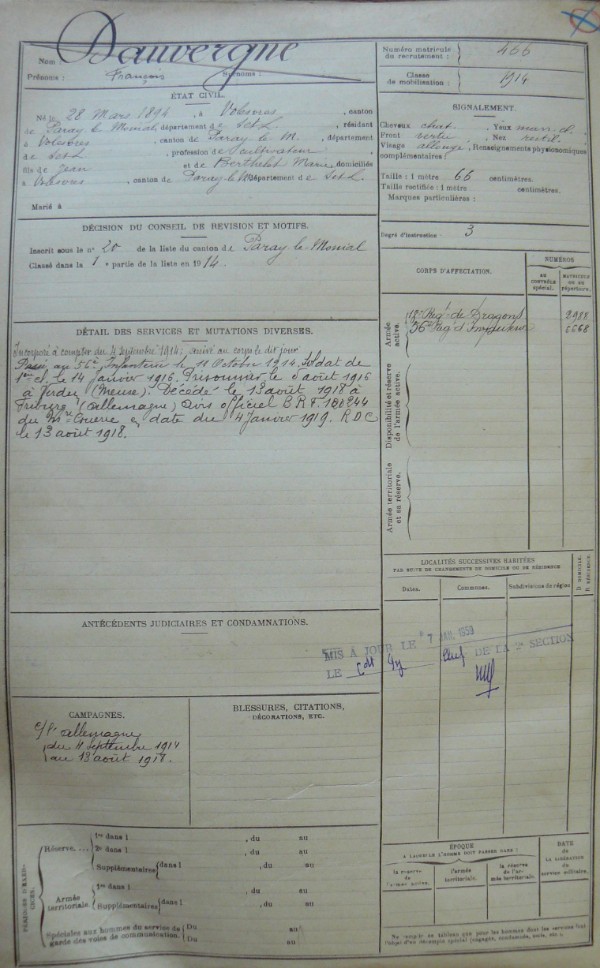 Nom : Dauvergne
Prénoms : François Surnoms :
ÉTAT CIVIL.
Né le 28 Mars 1894, à Volesvres, canton
de Paray le Monial, département de S et L, résidant
à Volesvres, canton de Paray le M., département
de S et L, profession de cultivateur
fils de Jean et de Berthelot Marie, domiciliés
à Volesvres, canton de Paray le M, département de S et L.
Marié à
DÉCISION DU CONSEIL DE RÉVISION ET MOTIFS.
Inscrit sous le n° 20 de la liste du canton de Paray le Monial
Classé dans la 1e partie de la liste en 1914.
DÉTAIL DES SERVICES ET MUTATIONS DIVERSES.
Incorporé à compter du 4 septembre 1914, arrivé au corps le dit jour
Passé au 56e Infanterie le 11 Octobre 1914. Soldat de
1ère cl. le 14 janvier 1916. Prisonnier le 6 août 1916
à Verdun (Meuse). Décédé le 13 août 1918 à
(Allemagne) Avis officiel B.R.F. 120244
du Mre Guerre en date du 4 janvier 1919. RDC
le 13 août 1918.
ANTÉCÉDENTS JUDICIAIRES ET CONDAMNATIONS.
CAMPAGNES.
c/ l'Allemagne
du 4 septembre 1914
au 13 août 1918.
BLESSURES, CITATIONS,
DÉCORATIONS, ETC.
PÉRIODES D'EXERCICES.
Réserve....
1re dans l , du au
2e dans l , du au
Supplémentaires dans l , du au
Armée
territoriale.
1re dans l , du au
Supplémentaires dans l , du au
Spéciales aux hommes du service de
garde des voies de communication.
Du au
Du au
Numéro matricule
du recrutement : 466
Classe
de mobilisation : 1914
SIGNALEMENT.
Cheveux chat. Yeux mar. cl.
Front Nez rectil.
Visage allongé, Renseignements physionomiques
complémentaires :
Taille : 1 mètre 66 centimètres.
Taille rectifiée : 1 mètre centimètres.
Marques particulières :
Degré d'instruction : 3
CORPS D'AFFECTATION.
NUMÉROS
AU CONTRÔLE SPÉCIAL.
MATRICULE OU AU RÉPERTOIRE.
Armée active.
Régt de Dragons 2988
56e Régt d'Infanterie 6568
Disponibilité et réserve
de l'armée active.
Armée territoriale
et sa réserve.
LOCALITÉS SUCCESSIVES HABITÉES
PAR SUITE DE CHANGEMENTS DE DOMICILE OU DE RÉSIDENCE
Dates. Communes. Subdivisions de région D. DOMICILE. R. RÉSIDENCE.
MIS À JOUR LE
LE Chef DE LA 2e SECTION
ÉPOQUE
À LAQUELLE L'HOMME DOIT PASSER DANS :
la réserve
de l'armée active.
l'armée
territoriale.
la réserve
de l'armée territoriale.
DATE
de la
LIBÉRATION
du
service militaire.